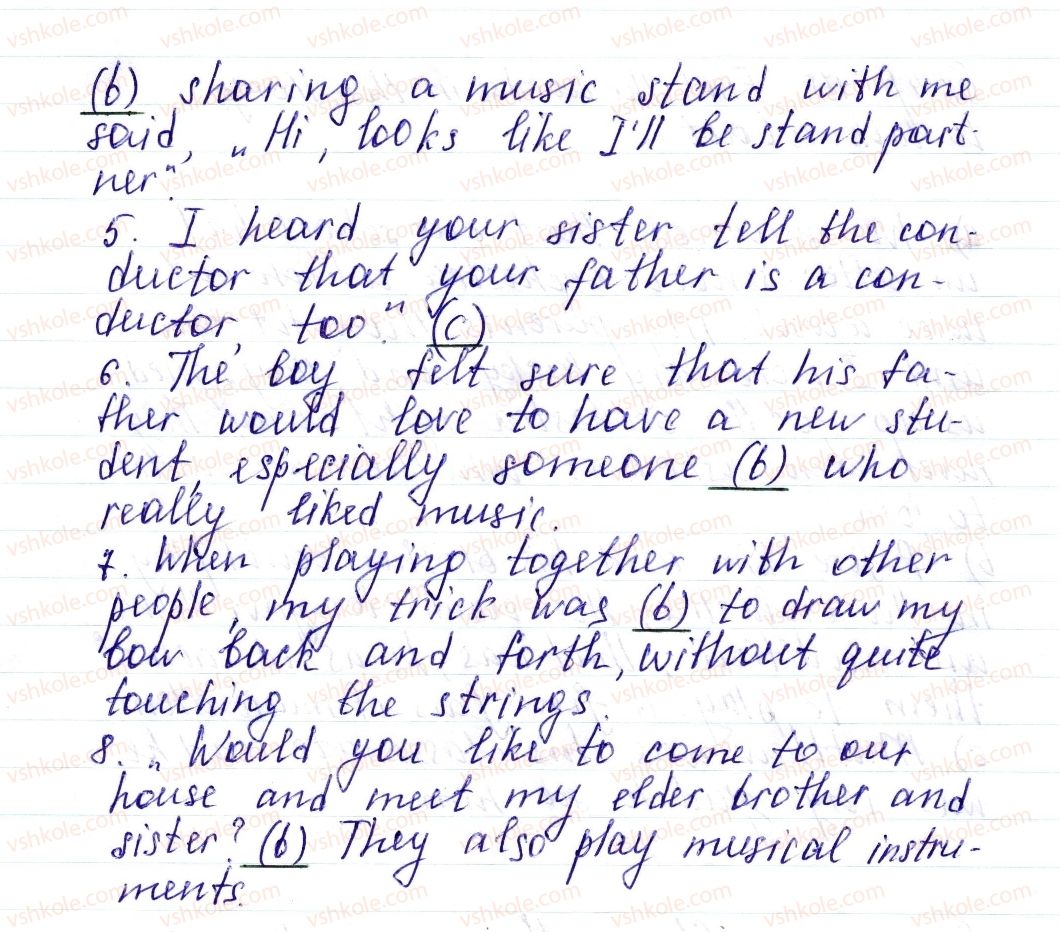 (b) sharing a music stand with me
said, „Hi, looks like I'll be stand part-
ner".
5. I heard your sister tell the con-
ductor that your father is a con-
ductor, too." (c)
6. The boy felt sure that his fa-
ther would love to have a new stu-
dent, especially someone (b) who
really liked music.
7. When playing together with other
people, my trick was (b) to draw my
bow back and forth, without quite
touching the strings.
8. „Would you like to come to our
house and meet my elder brother and
sister? (b) They also play musical instru-
ments.